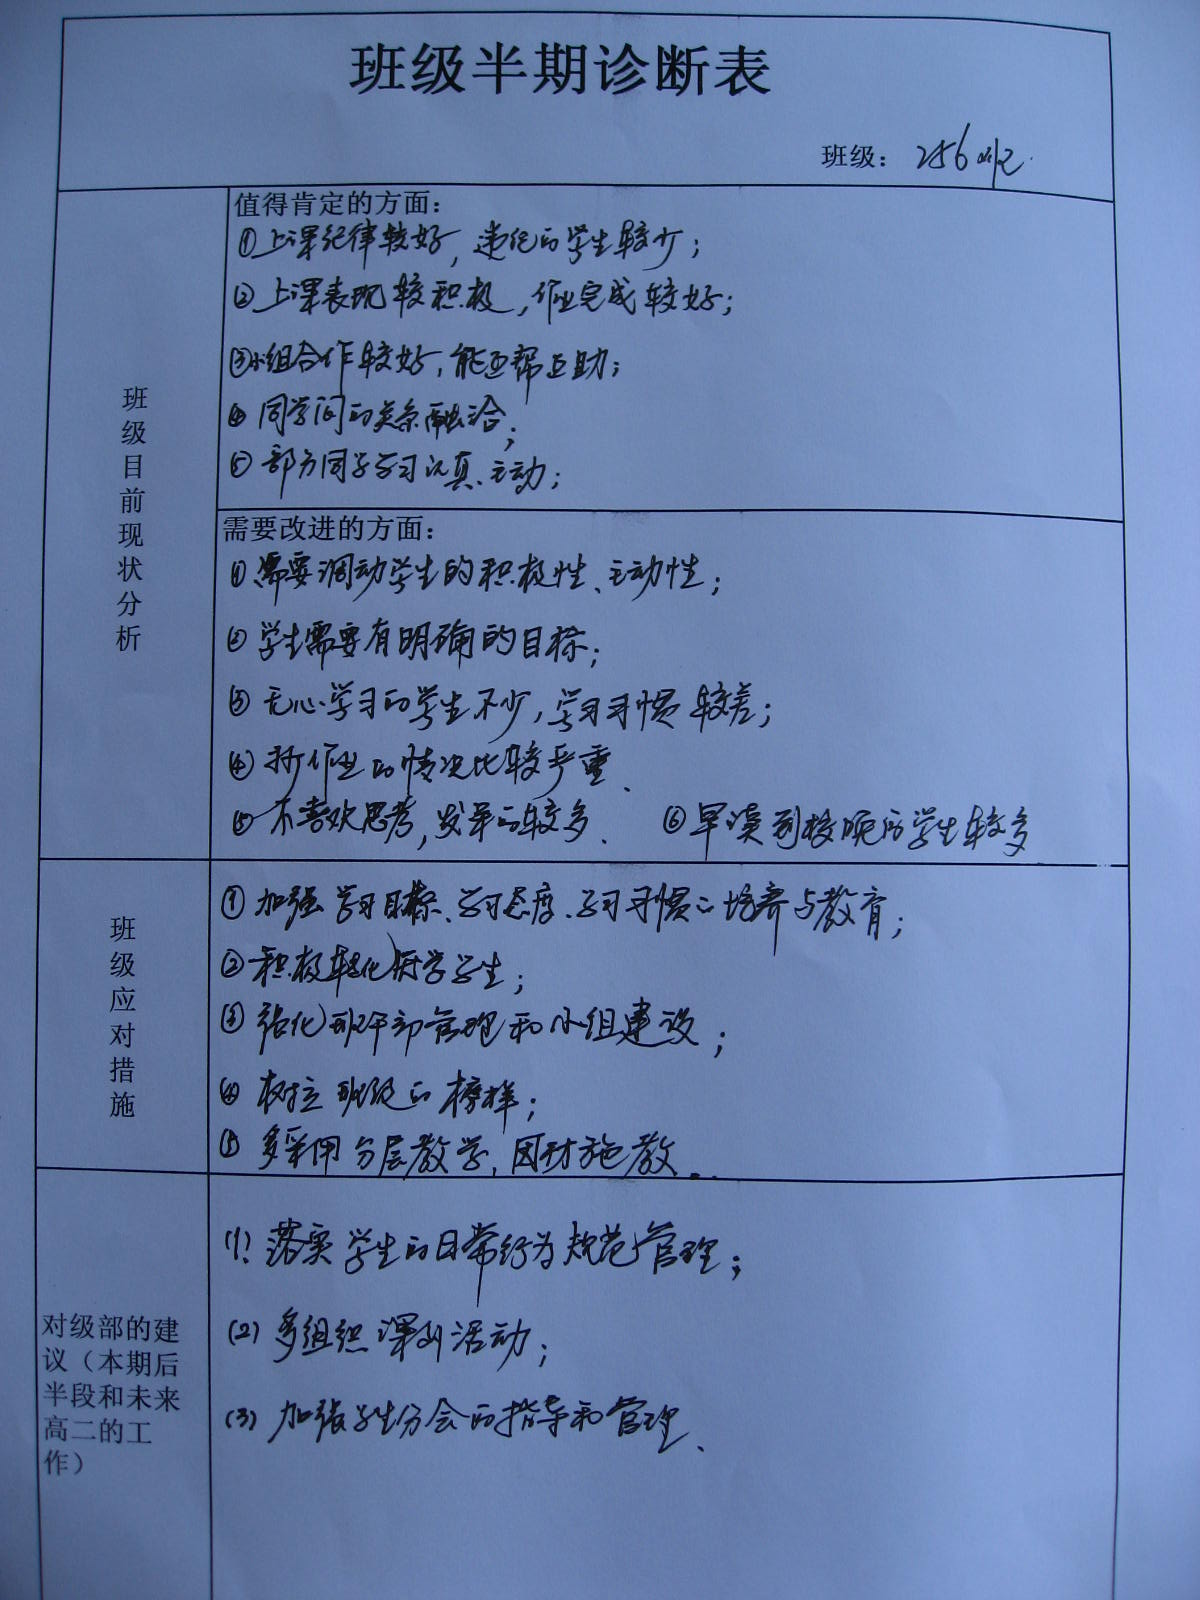 班级半期诊断表
班级：256班.
班级目前现状分析
值得肯定的方面：
①上课纪律较好，违纪的学生较少；
②上课表现较积极，作业完成较好；
③小组合作较好，能互帮互助；
④同学间的关系融洽；
⑤部分同学学习认真、主动；
需要改进的方面：
①需要调动学生的积极性、主动性；
②学生需要有明确的目标；
③无心学习的学生不少，学习习惯较差；
④抄作业的情况比较严重、
⑤不喜欢思考，发呆的较多、 ⑥早读到校晚的学生较多
班级应对措施
①加强学习目标、学习态度、学习习惯的培养与教育；
②积极转化厌学学生；
③强化班干部管理和小组建设；
④树立班级的榜样；
⑤多采用分层教学，因材施教。
对级部的建
议（本期后
半段和未来
高二的工
作）
(1) 落实学生的日常行为规范管理；
(2) 多组织课外活动；
(3) 加强学生分会的指导和管理、